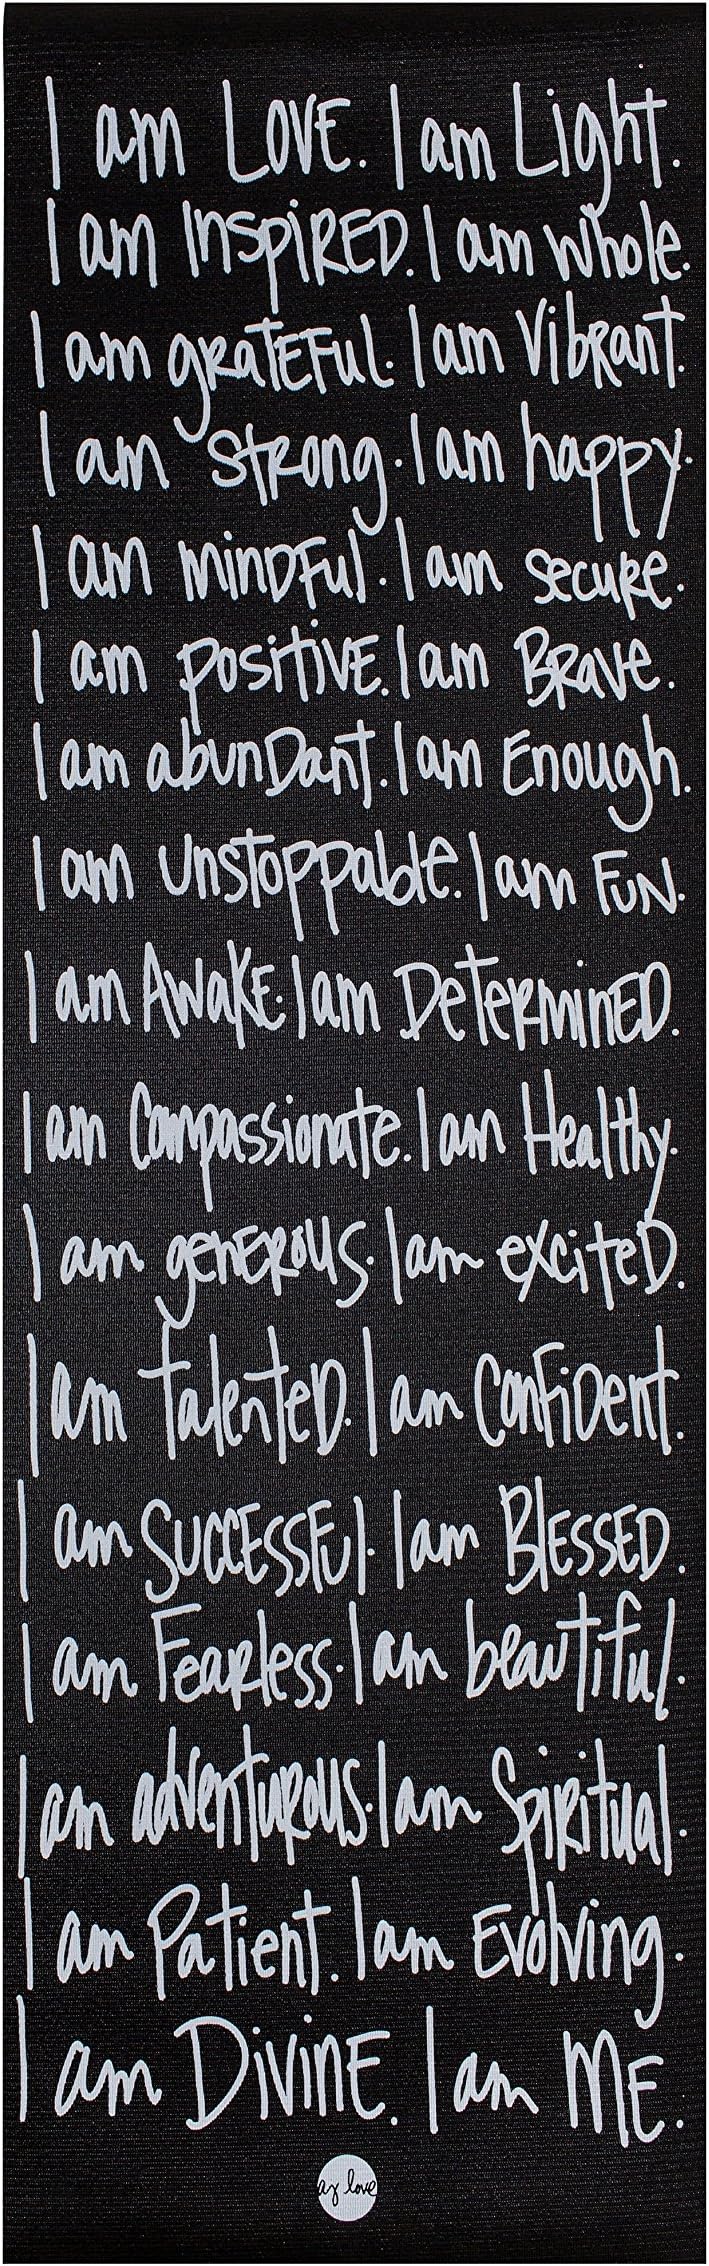 I am LOVE. I am Light.
I am InspiRED. I am whole.
I am gRaTEFul. I am VibRanT.
I am stRong. I am happy.
I am minDFul. I am secuRe.
I am positIVE. I am BRave.
I am abunDanT. I am Enough.
I am Unstoppable. I am FUN.
I am AwaKE. I am DeteRminED.
I am Compassionate. I am Healthy.
I am genERous. I am exciteD.
I am TalenteD. I am ConFiDent.
I am SUCCESSFul. I am BlESSED.
I am FeaRless. I am beautiful.
I am adventuRous. I am SpiRitual.
I am Patient. I am Evolving.
I am DivinE. I am ME.
az love